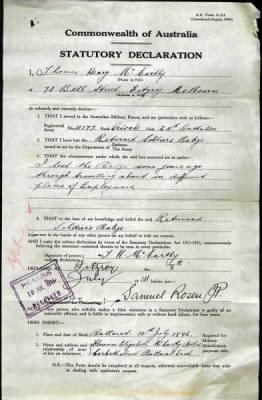 A.A. Form A.113
Commonwealth of Australia
STATUTORY DECLARATION
I, Thomas Henry McCarthy
(Name in Full)
of 78 Bell Street Fitzroy Melbourne
(Address in Full)
do solemnly and sincerely declare—
1. THAT I served in the Australian Military Forces, and my particulars were as follows:—
Registered No. Rank Private Unit Battalion
2. THAT I have lost the Returned Soldiers Badge
of the Army
3. THAT the circumstances under which the said loss occurred are as under:—
I lost the Badge some years ago
through travelling about in different
places of Employment
4. THAT to the best of my knowledge and belief the said Returned
Soldiers Badge
is not in the hands of any other person on my behalf or with my consent.
AND I make this solemn declaration by virtue of the Statutory Declarations Act 1911-1922, conscientiously
believing the statements contained therein to be true in every particular.
Signature T H McCarthy
Declared at Fitzroy
July
Samuel Rosen J.P.
NOTE.—Any person who wilfully makes a false statement in a Statutory Declaration is guilty of an
indictable offence, and is liable to imprisonment, with or without hard labour, for four years.
HERE INSERT:—
Place and Date of Birth Ballarat 10th July 1896
Name and address and relationship of next of kin on enlistment
Ballarat East
Required for Military identification purposes only.
NOTE.—This form should be completed in all respects, otherwise unavoidable delay may arise
in dealing with applicant's request.